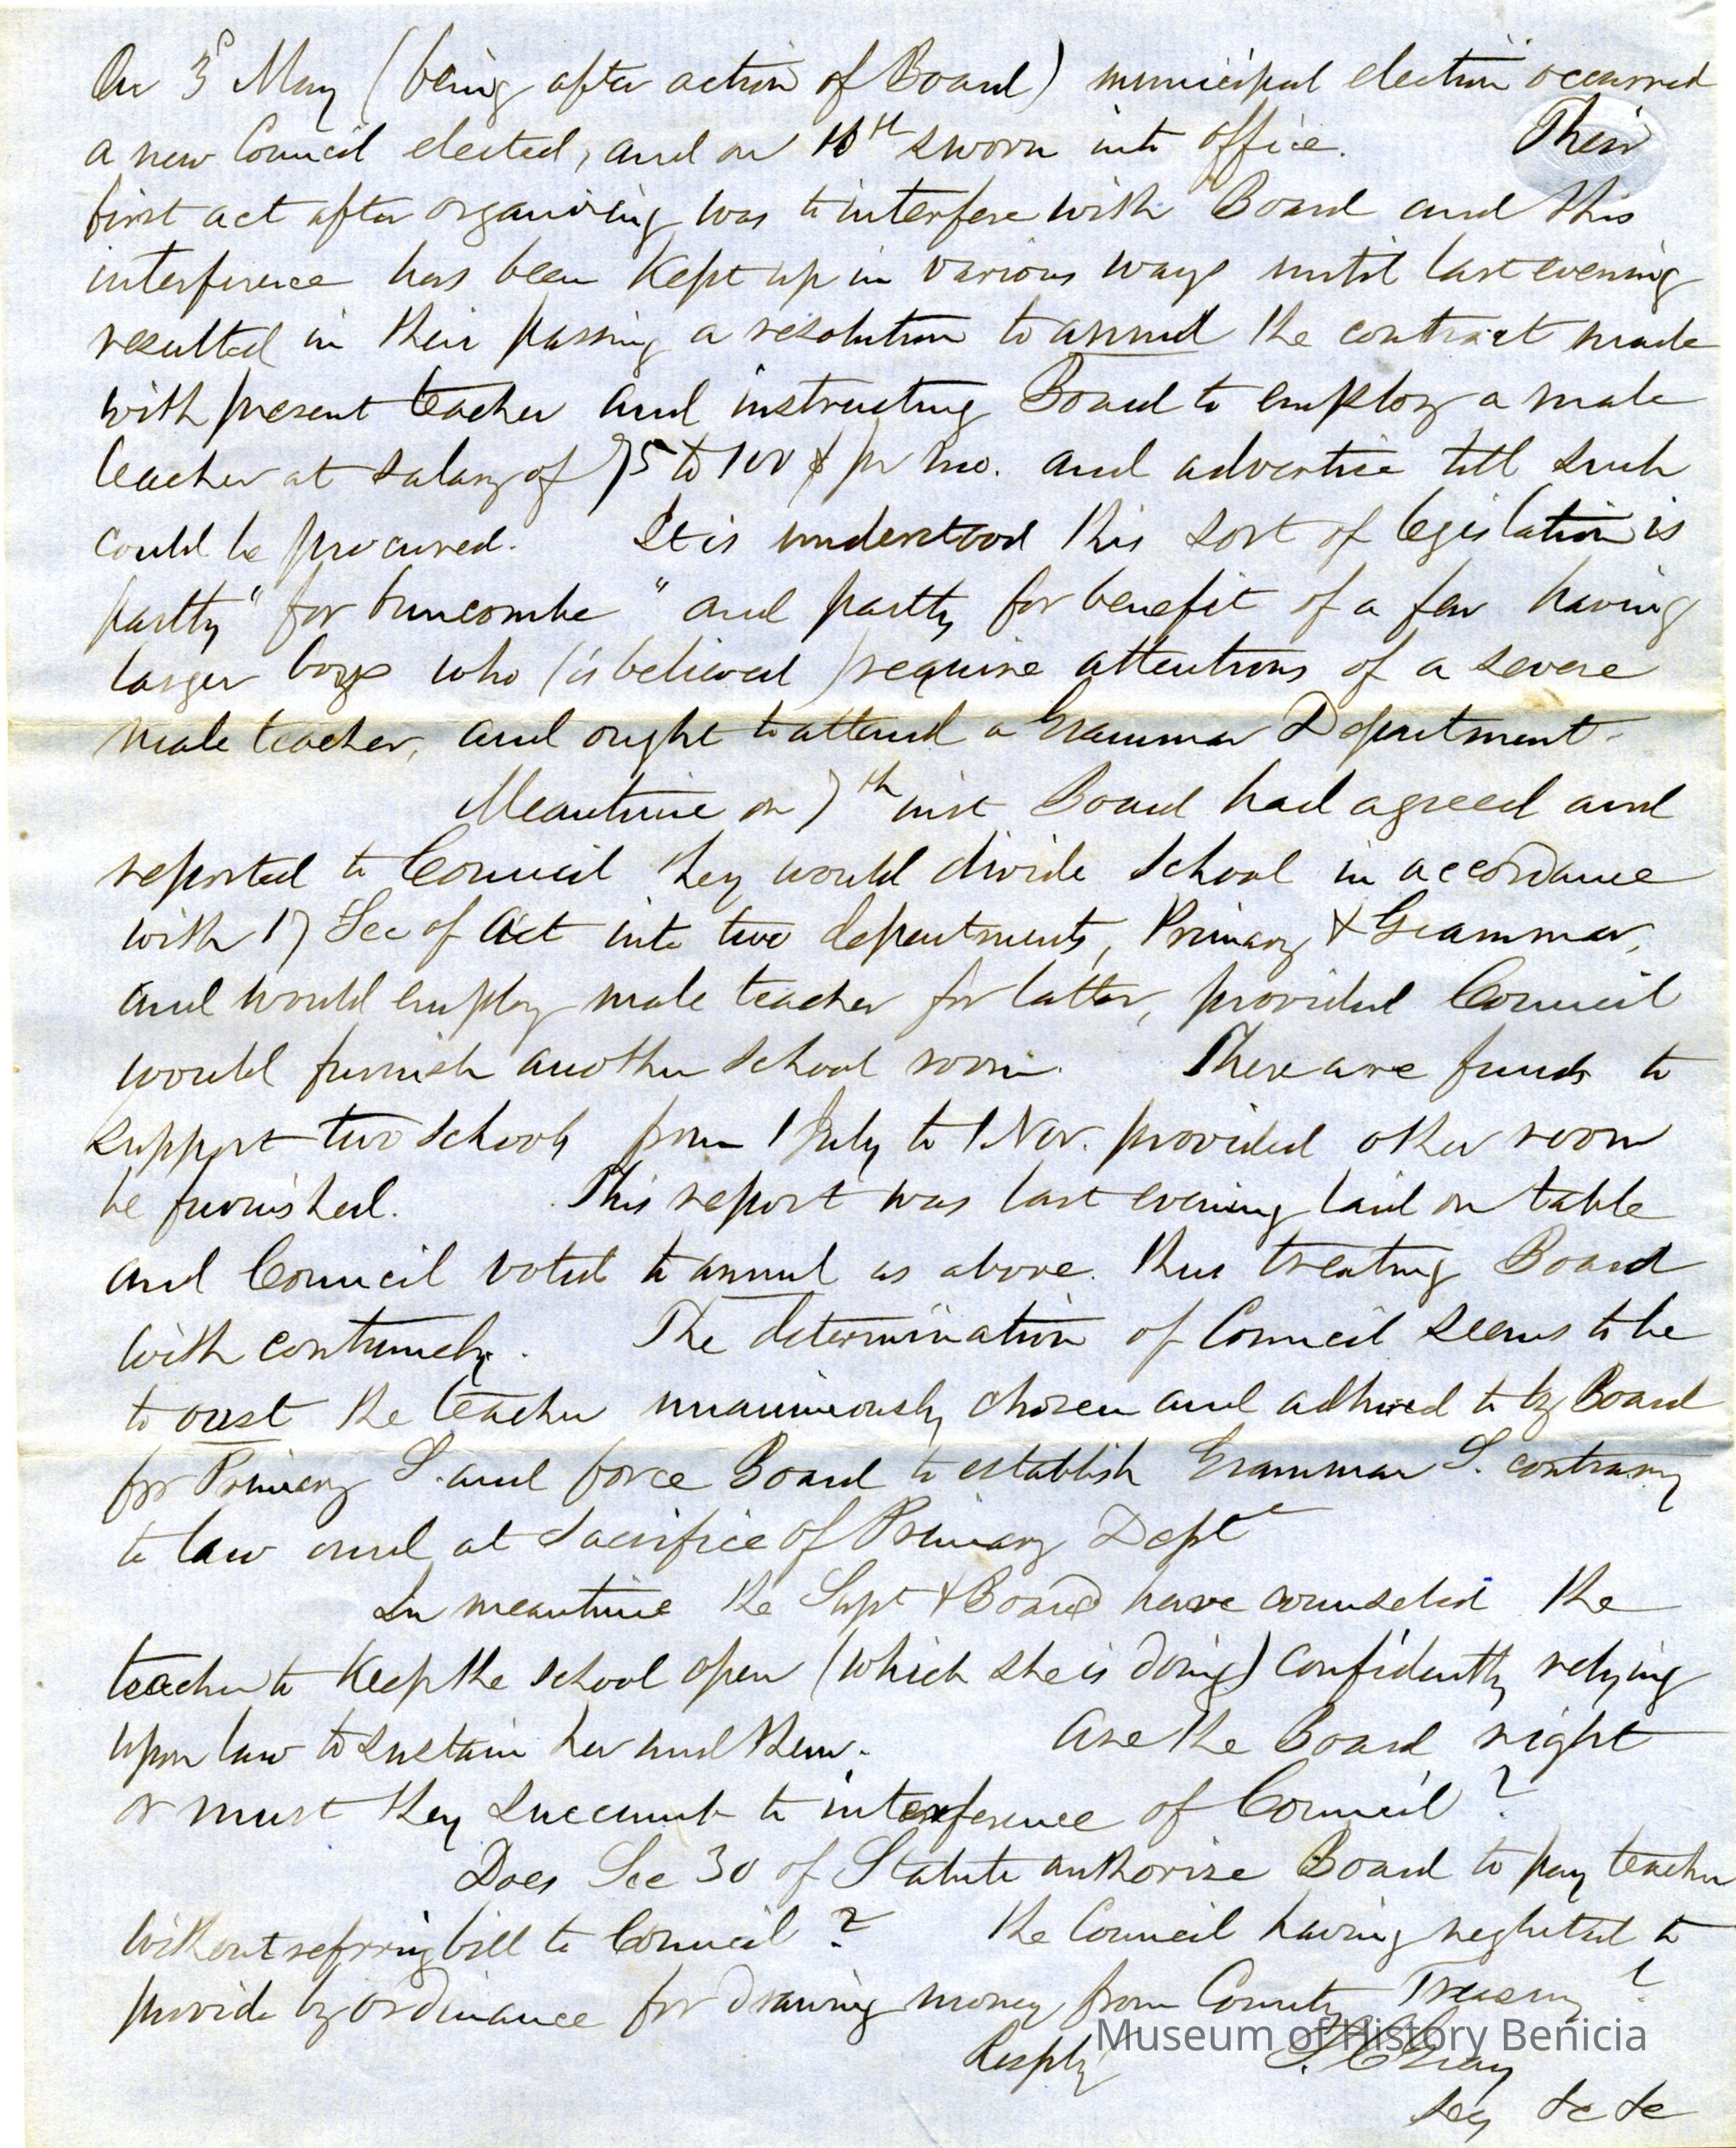 On 3d May (being after action of Board) municipal election occurred
a new Council elected, and on 10th sworn into office. Their
first act after organizing was to interfere with Board and this
interference has been kept up in various ways until last evening
resulted in their passing a resolution to annul the contract made
with present teacher and instructing Board to employ a male
teacher at salary of 75 to 100 $ pr mo. and advertise till such
could be procured. It is understood this sort of legislation is
partly "for buncombe" and partly for benefit of a few having
larger boys who (is believed) require attentions of a severe
male teacher, and ought to attend a Grammar Department.
Meantime on 7th inst Board had agreed and
reported to Council they would divide School in accordance
with 17 Sec of Act into two departments, Primary & Grammar,
and would employ male teacher for latter, provided Council
would furnish another School room. There are funds to
support two schools from 1 July to 1 Nov. provided other room
be furnished. This report was last evening laid on table
and Council voted to annul as above. thus treating Board
with contumely. The determination of Council seems to be
to oust the teacher unanimously chosen and adhered to by Board
for Primary S. and force Board to establish Grammar S. contrary
to law and at sacrifice of Primary Dept
In meantime the Supt & Board have counseled the
teacher to keep the School open (which she is doing) confidently relying
upon law to sustain her and them. Are the Board right
or must they succumb to interference of Council?
Does Sec 30 of Statute authorize Board to pay teacher
without referring bill to Council? the Council having neglected to
provide by ordinance for drawing money from County Treasury?
Resply Gray
Secy &c &c
Museum of History Benicia